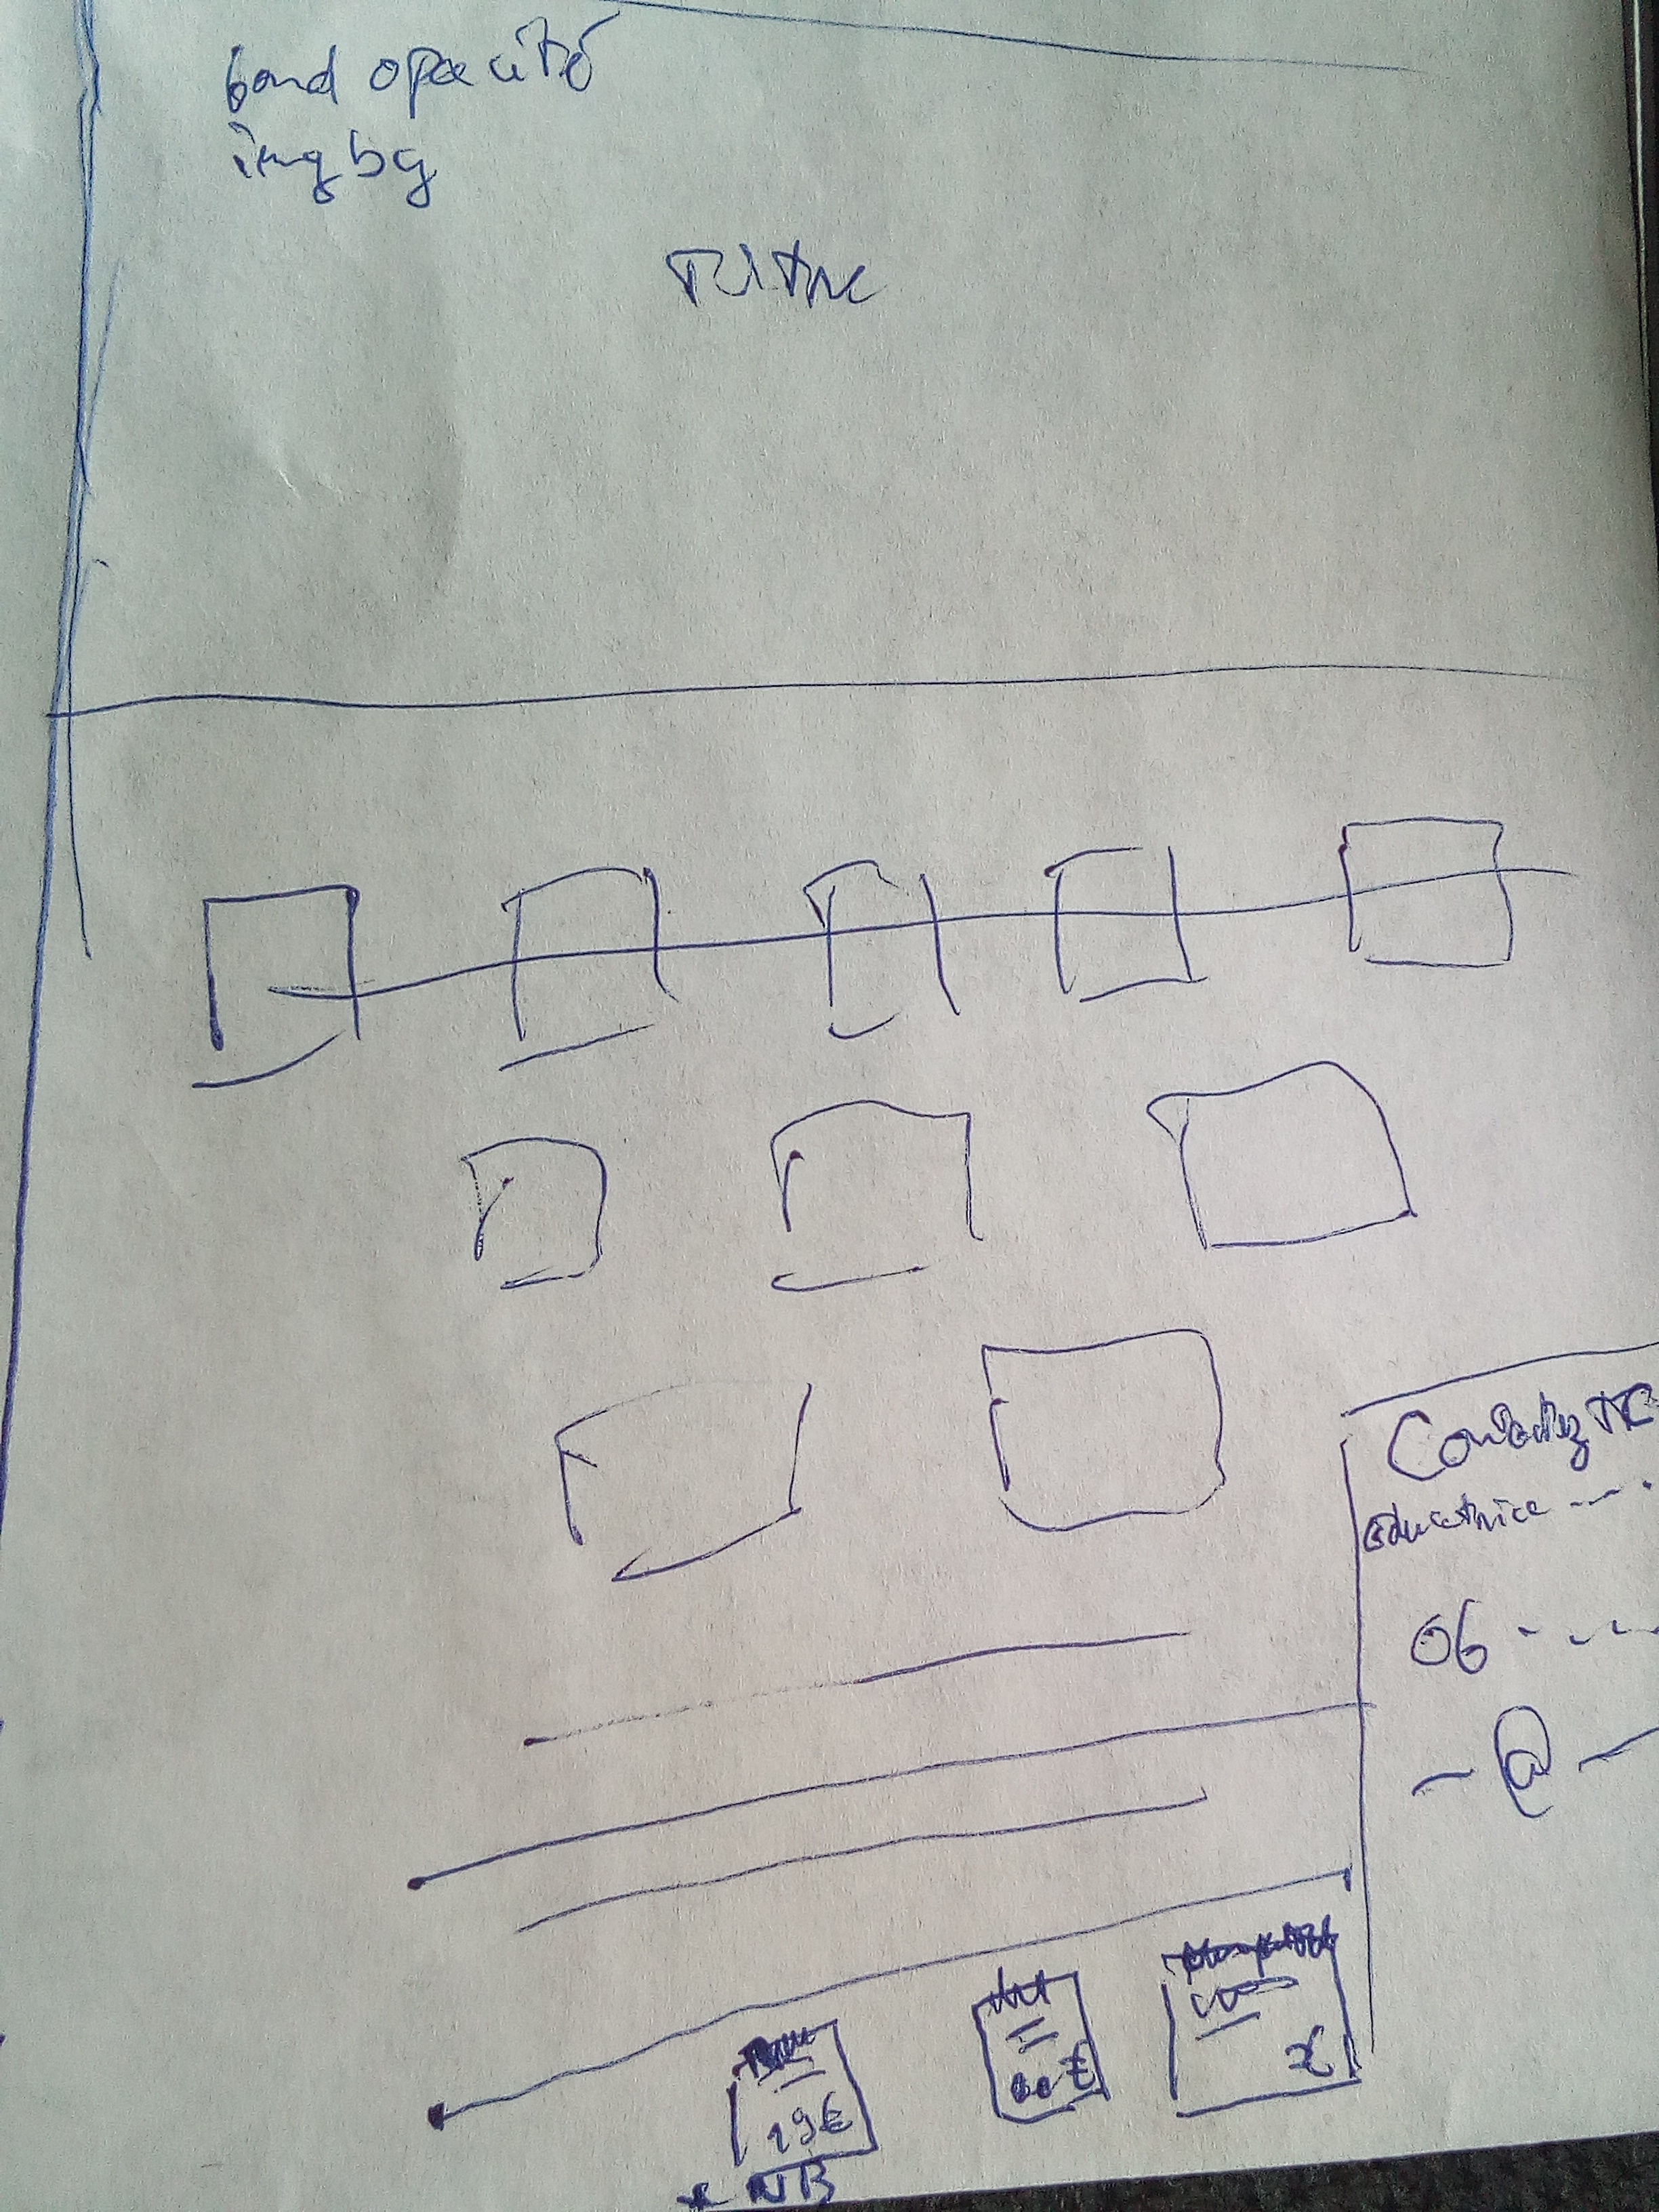 fond opacité
img bg
Titre
Contactez
éducatrice ---
06 - - --
- @ -
19€
€
* NB